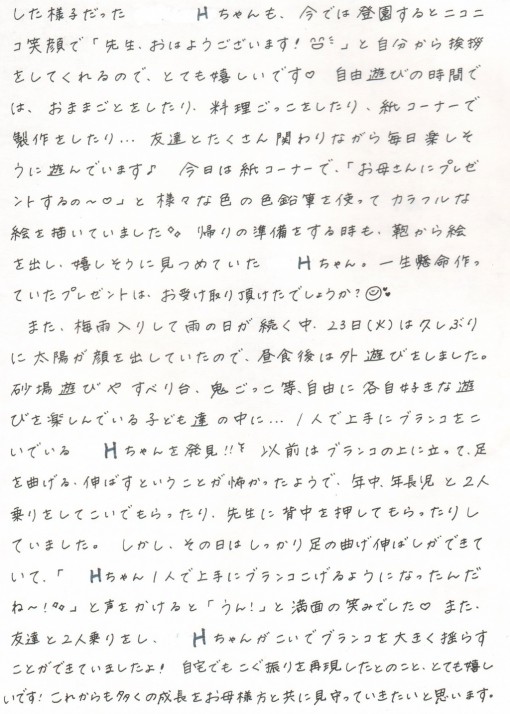 した様子だった　Hちゃんも、今では登園するとニコニ
コ笑顔で「先生、おはようございます!」と自分から挨拶
をしてくれるので、とても嬉しいです♡ 自由遊びの時間で
は、おままごとをしたり、料理ごっこをしたり、紙コーナーで
製作をしたり… 友達とたくさん関わりながら毎日楽しそ
うに遊んでいます♪ 今日は紙コーナーで、「お母さんにプレゼ
ントするの〜♡」と様々な色の色鉛筆を使ってカラフルな
絵を描いていました 帰りの準備をする時も、鞄から絵
を出し、嬉しそうに見つめていた　Hちゃん。一生懸命作っ
ていたプレゼントは、お受け取り頂けたでしょうか?☺♥
また、梅雨入りして雨の日が続く中、23日(火)は久しぶり
に太陽が顔を出していたので、昼食後は外遊びをしました。
砂場遊びやすべり台、鬼ごっこ等、自由に各自好きな遊
びを楽しんでいる子ども達の中に… 1人で上手にブランコをこ
いでいる　Hちゃんを発見!! 以前はブランコの上に立って、足
を曲げる、伸ばすということが怖かったようで、年中、年長児と2人
乗りをしてこいでもらったり、先生に背中を押してもらったりし
ていました。しかし、その日はしっかり足の曲げ伸ばしができて
いて、「　Hちゃん1人で上手にブランコこげるようになったんだ
ね〜!」と声をかけると「うん!」と満面の笑みでした♡ また、
友達と2人乗りをし、　Hちゃんがこいでブランコを大きく揺らす
ことができていましたよ! 自宅でもこぐ振りを再現したとのこと、とても嬉し
いです! これからも多くの成長をお母様方と共に見守っていきたいと思います。